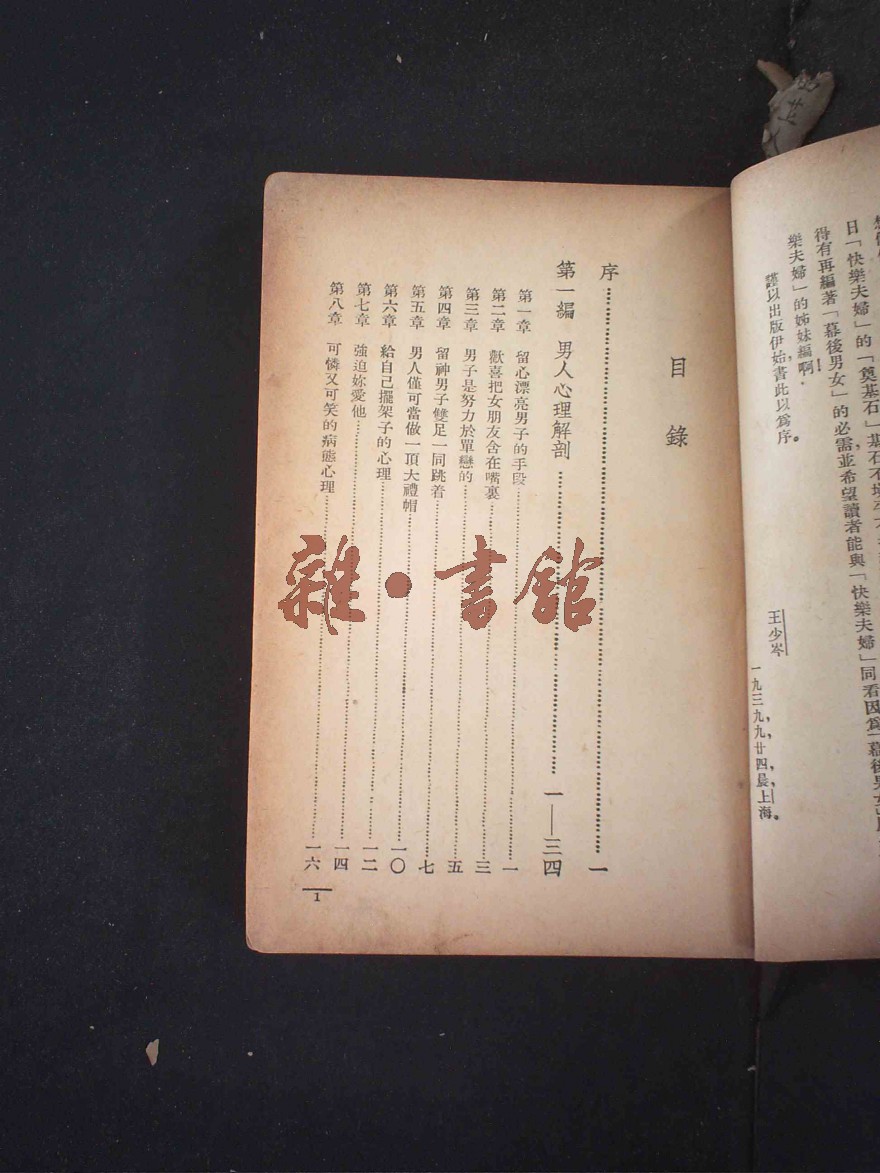 日「快樂夫婦」的「奠基石」基石不
得有再編著「幕後男女」的必需,並希望讀者能與「快樂夫婦」同看因爲「幕後男女」
樂夫婦」的姊妹編啊!
謹以出版伊始,書此以爲序。
王少岑
一九三九,九,廿四,晨,上海。
目錄
序……一
第一編 男人心理解剖……一—三四
第一章 留心漂亮男子的手段……一
第二章 歡喜把女朋友含在嘴裏……三
第三章 男子是努力於單戀的……五
第四章 留神男子雙足一同跳着……七
第五章 男人僅可當做一頂大禮帽……一〇
第六章 給自己擺架子的心理……一二
第七章 強迫妳愛他……一四
第八章 可憐又可笑的病態心理……一六
1
雜·書館